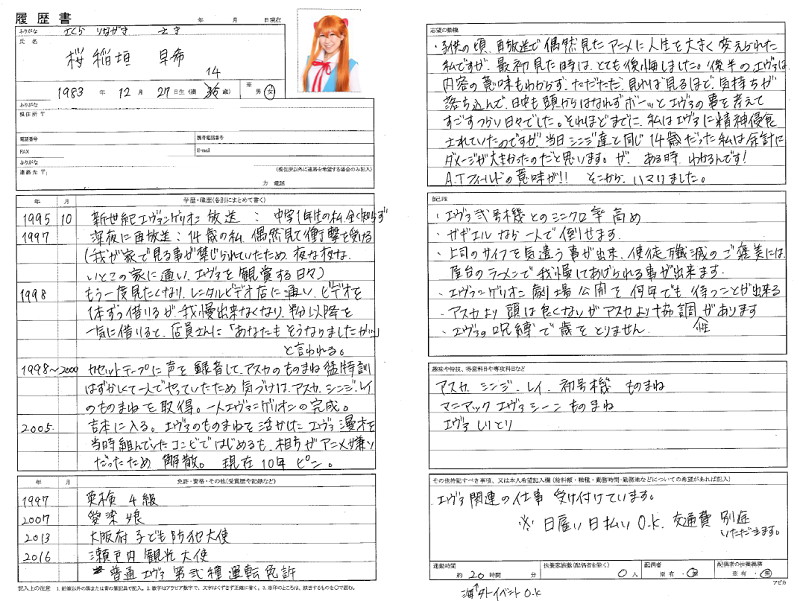 履歴書
年 月 日現在
ふりがな さくら いながき さき
氏名
桜 稲垣 早希
14
1983 年 12 月 27日生 (満 歳) ※ 男・女
ふりがな
現住所 〒
電話番号 携帯電話番号
FAX E-mail
ふりがな
連絡先 〒 (現住所以外に連絡を希望する場合のみ記入)
方 電話
年 月 学歴・職歴(各別にまとめて書く)
1995 10 新世紀エヴァンゲリオン 放送 : 中学1年生の私 全く知らず
1997 深夜に再放送 : 14歳の私 偶然見て衝撃を受ける
(我が家で見る事が禁じられていたため 夜な夜な
いとこの家に通い、エヴァを観賞する日々)
1998 もう一度見たくなり、レンタルビデオ店に通い、ビデオを
1本ずつ借りるが我慢出来なくなり 4巻以降を
一気に借りると、店員さんに「あなたもそうなりましたか…」
と言われる。
1998〜2000 カセットテープに声を録音して、アスカのものまね猛特訓
はずかしくて一人でやっていたため 気づけば、アスカ、シンジ、レイ
のものまねを取得。一人エヴァンゲリオンの完成。
2005 吉本に入る。エヴァのものまねを活かしたエヴァ漫才を
当時組んでいたコンビではじめるも、相方がアニメが嫌い
だったため 解散。 現在10年 ピン。
年 月 免許・資格・その他(受賞歴や記録など)
1997 英検 4級
2007 愛染娘
2013 大阪府 子ども防犯大使
2016 瀬戸内 観光大使
* 普通エヴァ 第弐種運転免許
志望の動機
・子供の頃、再放送で偶然見たアニメに人生を大きく変えられた
私ですが、最初見た時は、とても後悔しました。後半のエヴァは
内容の意味もわからず、ただただ、見れば見るほど、気持ちが
落ち込んで、日中も頭からはなれずボーッとエヴァの事を考えて
すごすつらい日々でした。それほどまでに、私はエヴァに精神侵食
されていたのですが、当日シンジ達と同じ14歳だった私は余計に
ダメージが大きかったのだと思います。が、ある時、わかるんです!
A.Tフィールドの意味が!! そこから、ハマりました。
自己PR
・エヴァ弐号機とのシンクロ率高め
・ガギエルなら一人で倒せます。
・上司のサイフを気遣う事が出来、使徒殲滅のご褒美には、
屋台のラーメンで我慢してあげられる事が出来ます。
・エヴァンゲリオン劇場公開を何年でも待つことが出来る
・アスカより頭は良くないがアスカより協調性があります
・エヴァの呪縛で歳をとりません
趣味や特技、得意科目や専攻科目など
アスカ シンジ・レイ、初号機 ものまね
マニアックエヴァシーン ものまね
エヴァしりとり
その他特記すべき事項、又は本人希望記入欄
エヴァ関連の仕事 受け付けています。
※ 日雇い 日払い O.K. 交通費 別途
いただきます。
通勤時間 扶養家族数(配偶者を除く) 配偶者 配偶者の扶養義務
約 20 時間 分 0 人 有・無 有・無
海外イベントO.K
アピカ